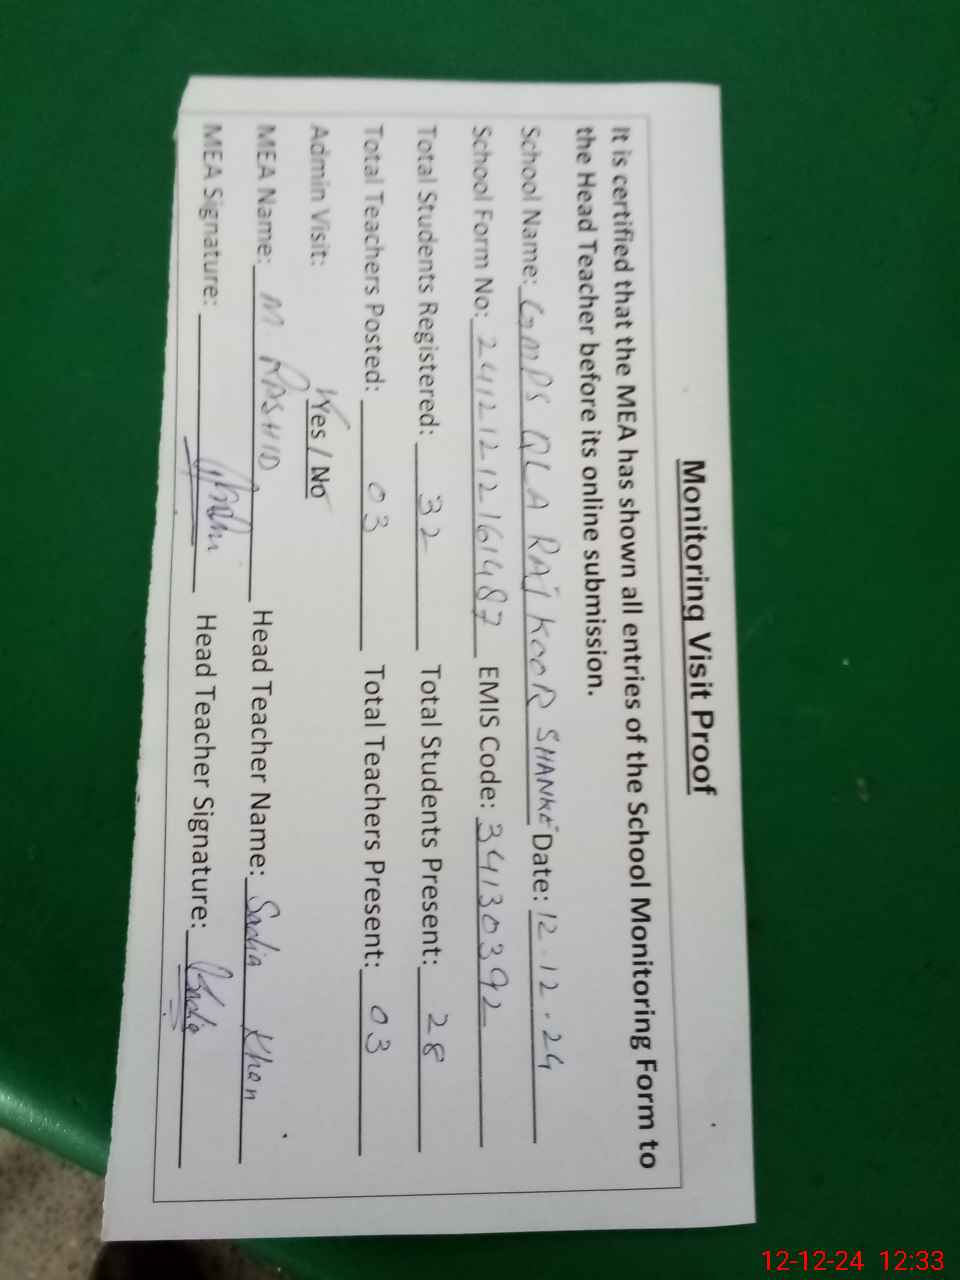 Monitoring Visit Proof
It is certified that the MEA has shown all entries of the School Monitoring Form to
the Head Teacher before its online submission.
School Name: GMPS QLA RAI KOOR SHANKE Date: 12-12-24
School Form No: 241212161487 EMIS Code: 34130392
Total Students Registered: 32 Total Students Present: 28
Total Teachers Posted: 03 Total Teachers Present: 03
Admin Visit: Yes / No
MEA Name: M RASHID Head Teacher Name: Sadia Khan
MEA Signature: Head Teacher Signature: Sadia
12-12-24 12:33